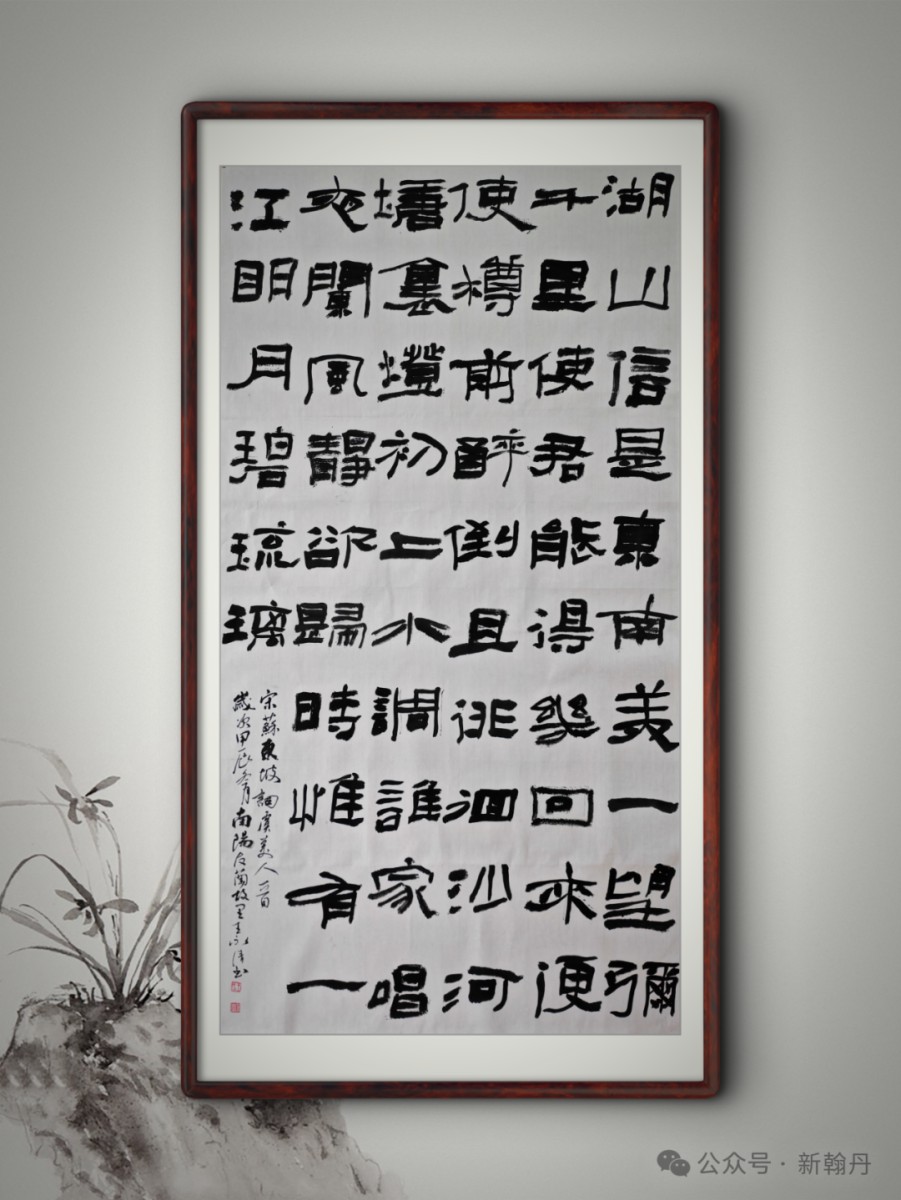 湖山信是東南美一望彌
千里使君能得幾回來便
使樽前醉倒且徘徊沙河
塘裏燈初上水調誰家唱
夜闌風靜欲歸時惟有一
江明月碧琉璃
宋蘇東坡詞虞美人一首
歲次甲辰冬月南陽故里書
公众号 · 新翰丹